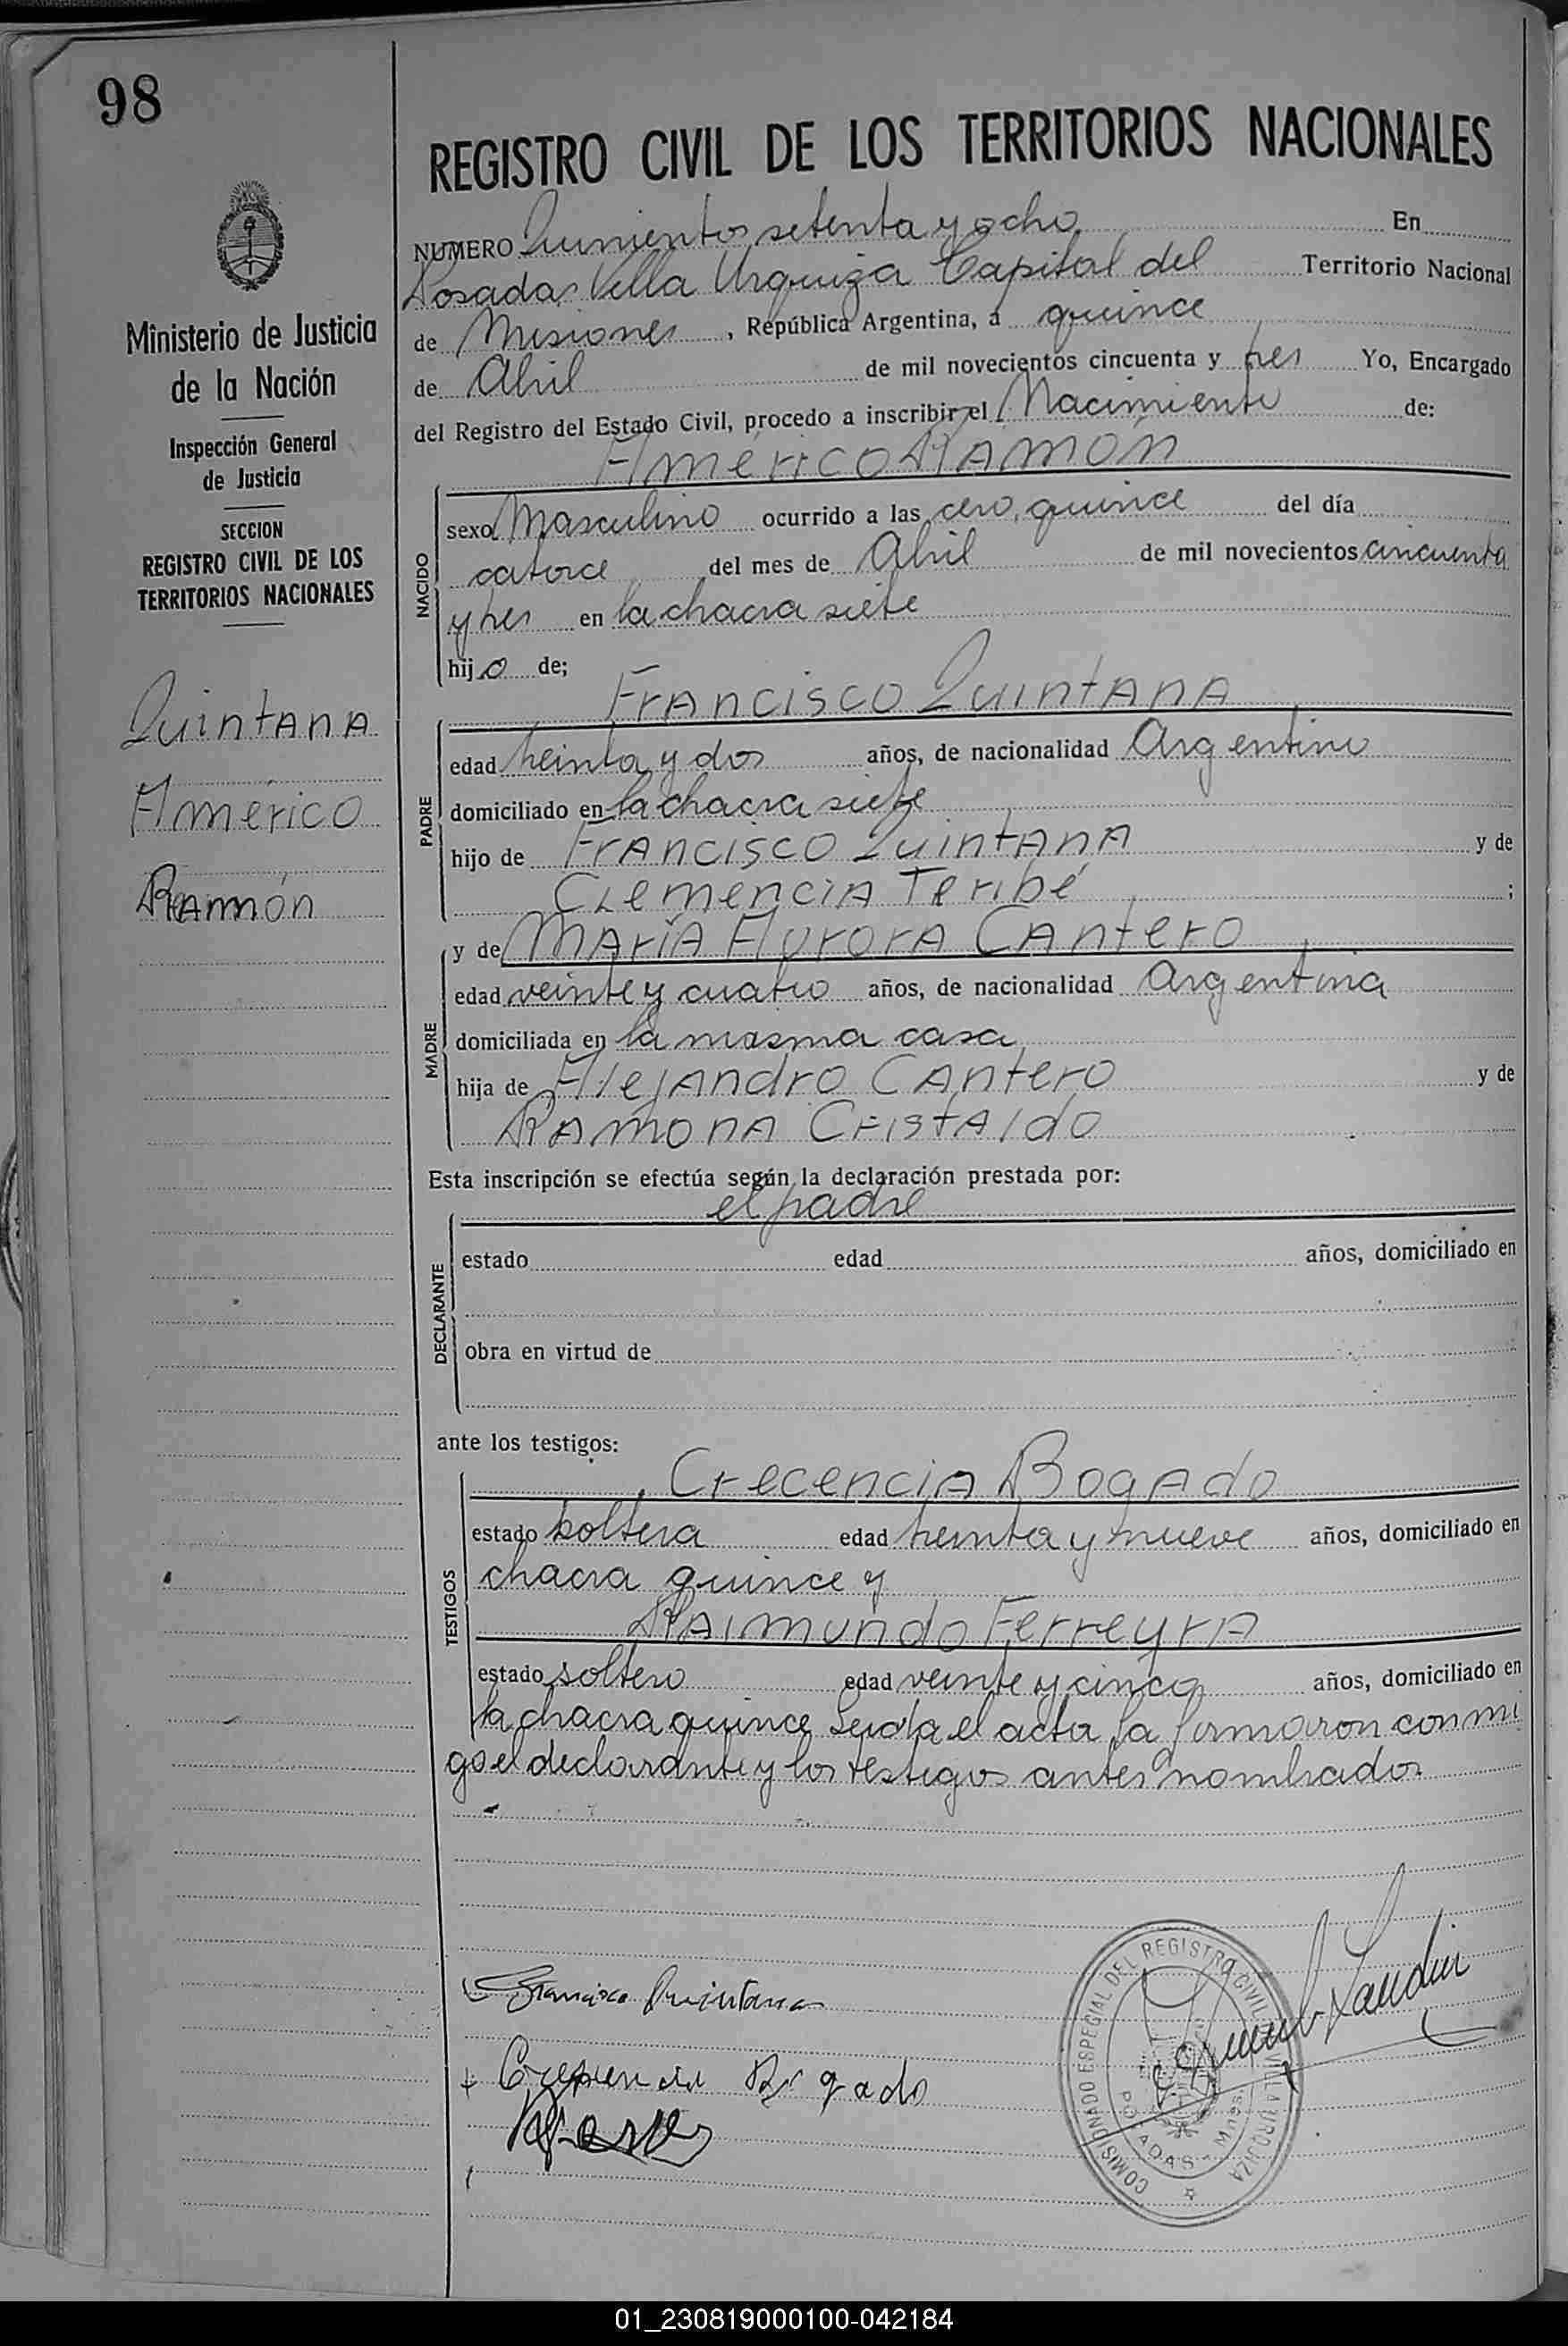 98
REGISTRO CIVIL DE LOS TERRITORIOS NACIONALES
Ministerio de Justicia
de la Nación
Inspección General
de Justicia
SECCION
REGISTRO CIVIL DE LOS
TERRITORIOS NACIONALES
Quintana
Américo
Ramón
NUMERO Quinientos setenta y ocho En
Posadas Villa Urquiza Capital del Territorio Nacional
de Misiones, República Argentina, a quince
de Abril de mil novecientos cincuenta y tres Yo, Encargado
del Registro del Estado Civil, procedo a inscribir el Nacimiento de:
Américo Ramón
NACIDO
sexo Masculino ocurrido a las cero, quince del día
catorce del mes de Abril de mil novecientos cincuenta
y tres en la chacra siete
hijo de;
Francisco Quintana
PADRE
edad treinta y dos años, de nacionalidad Argentino
domiciliado en la chacra siete
hijo de Francisco Quintana y de
Clemencia Teribé ;
MADRE
y de María Aurora Cantero
edad veinte y cuatro años, de nacionalidad Argentina
domiciliada en la misma casa
hija de Alejandro Cantero y de
Ramona Cristaldo
Esta inscripción se efectúa según la declaración prestada por:
el padre
DECLARANTE
estado edad años, domiciliado en
obra en virtud de
ante los testigos:
Crecencia Bogado
TESTIGOS
estado soltera edad treinta y nueve años, domiciliado en
chacra quince y
Raimundo Ferreyra
estado soltero edad veinte y cinco años, domiciliado en
la chacra quince Leida el acta, la firmaron conmi
go el declarante y los testigos antes nombrados.
Francisco Quintana
Crecencia Bogado
COMISIONADO ESPECIAL DEL REGISTRO CIVIL VILLA URQUIZA
POSADAS - Mnes.
01_230819000100-042184